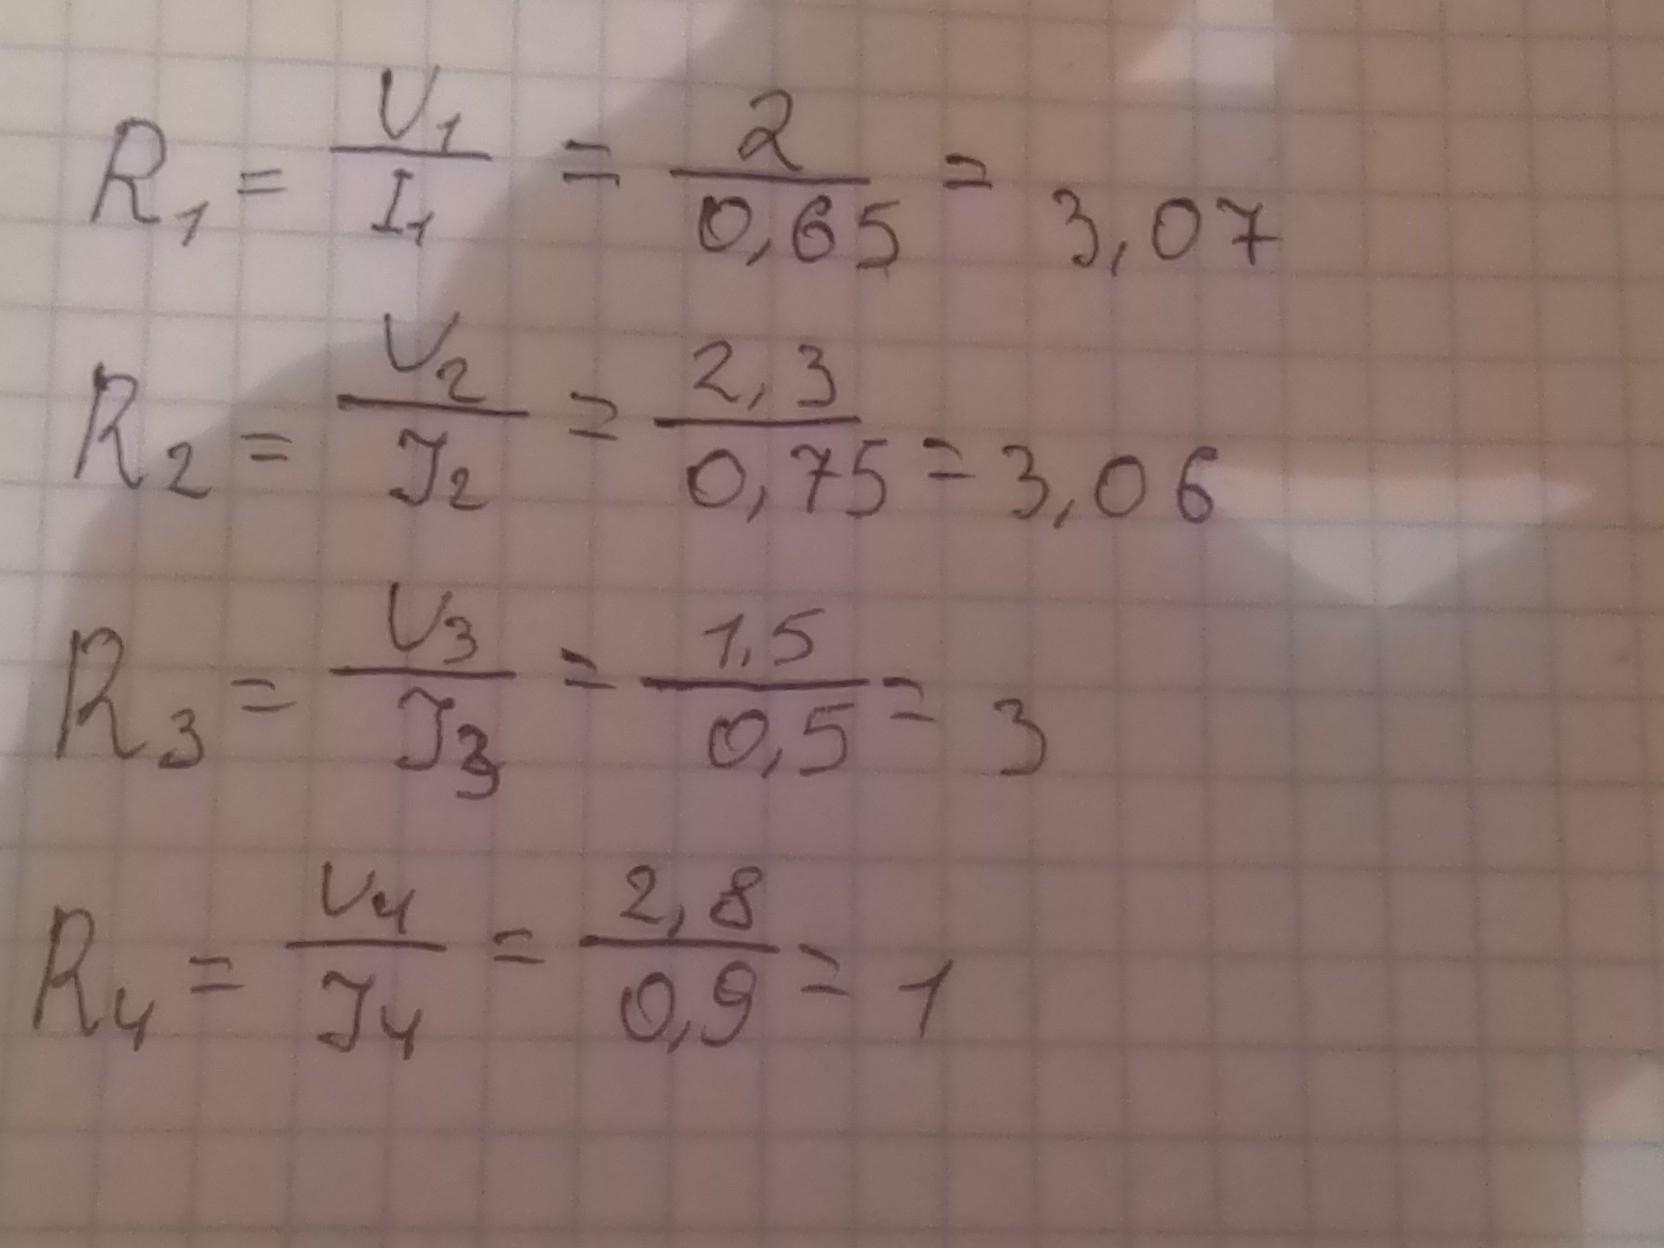 R₁ = U₁/I₁ = 2/0,65 = 3,07
R₂ = U₂/I₂ = 2,3/0,75 = 3,06
R₃ = U₃/I₃ = 1,5/0,5 = 3
R₄ = U₄/I₄ = 2,8/0,9 = 1